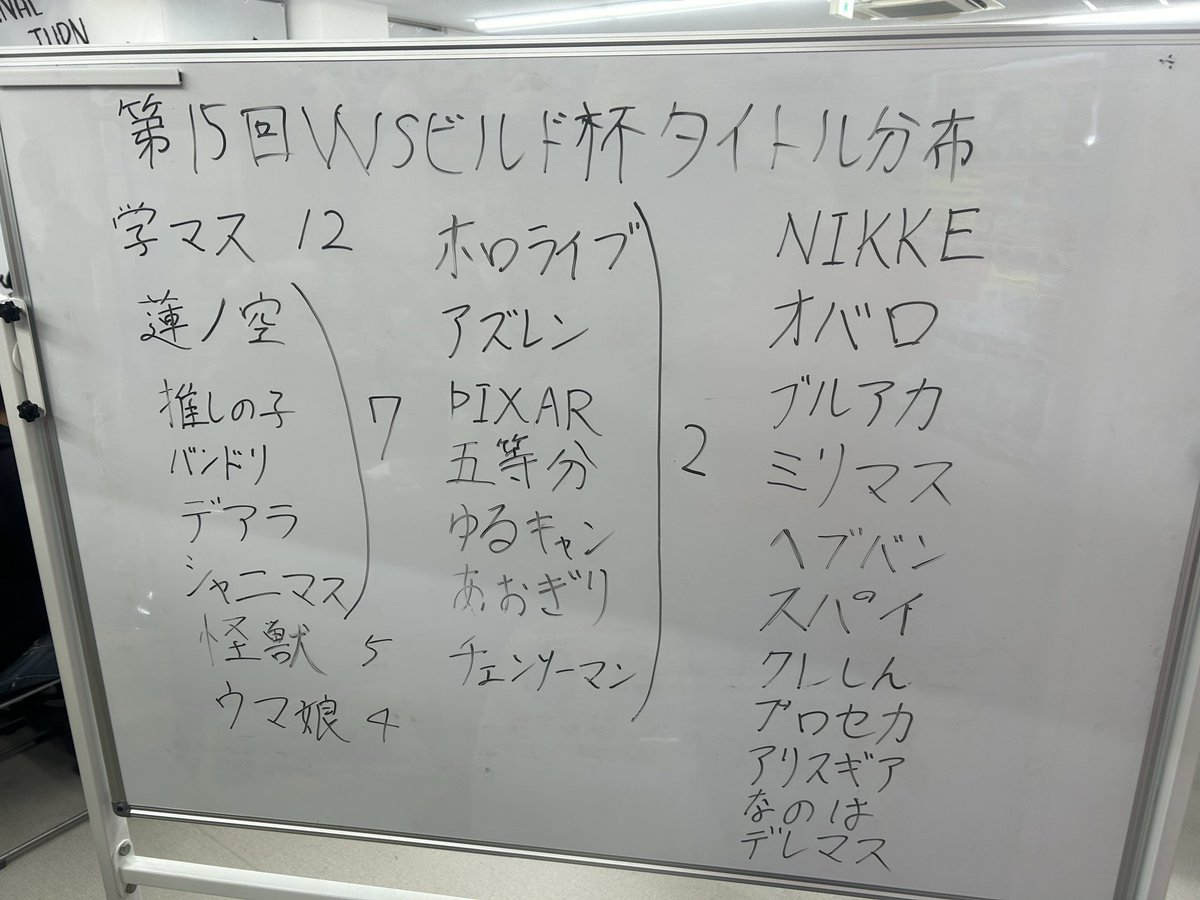 TURN
第15回WSビルド杯タイトル分布
学マス 12
蓮ノ空
推しの子
バンドリ
デアラ
シャニマス
7
怪獣 5
ウマ娘 4
ホロライブ
アズレン
PIXAR
五等分
ゆるキャン
あおぎり
チェンソーマン
2
NIKKE
オバロ
ブルアカ
ミリマス
ヘブバン
スパイ
クレしん
プロセカ
アリスギア
なのは
デレマス